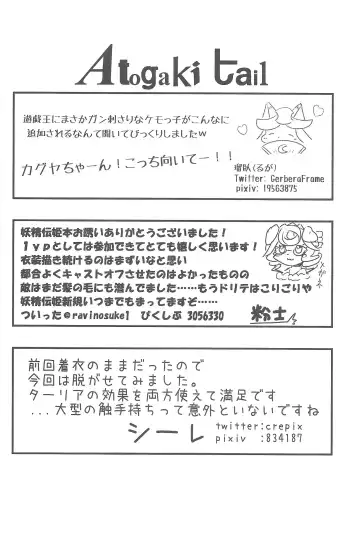 Atogaki tail
遊戯王にまさかガン刺さりなケモっ子がこんなに
追加されるなんて聞いてびっくりしましたw
カグヤちゃーん！こっち向いてー！！
瑠臥(るが)
Twitter: GerberaFrame
pixiv: 19563875
妖精伝姫本お誘いありがとうございました！
1ypとしては参加できてとても嬉しく思います！
衣装描き続けるのはまずいなと思い
都合よくキャストオフさせたのはよかったものの
敵はまだ髪の毛にも潜んでました……もうドリテはこりごりや
妖精伝姫新規いつまでもまってますぞ……
ついった@ravinosuke1 ぴくしぶ 3056330
粉士
前回着衣のままだったので
今回は脱がせてみました。
ターリアの効果を両方使えて満足です
...大型の触手持ちって意外といないですね
シーレ
twitter:crepix
pixiv :834187